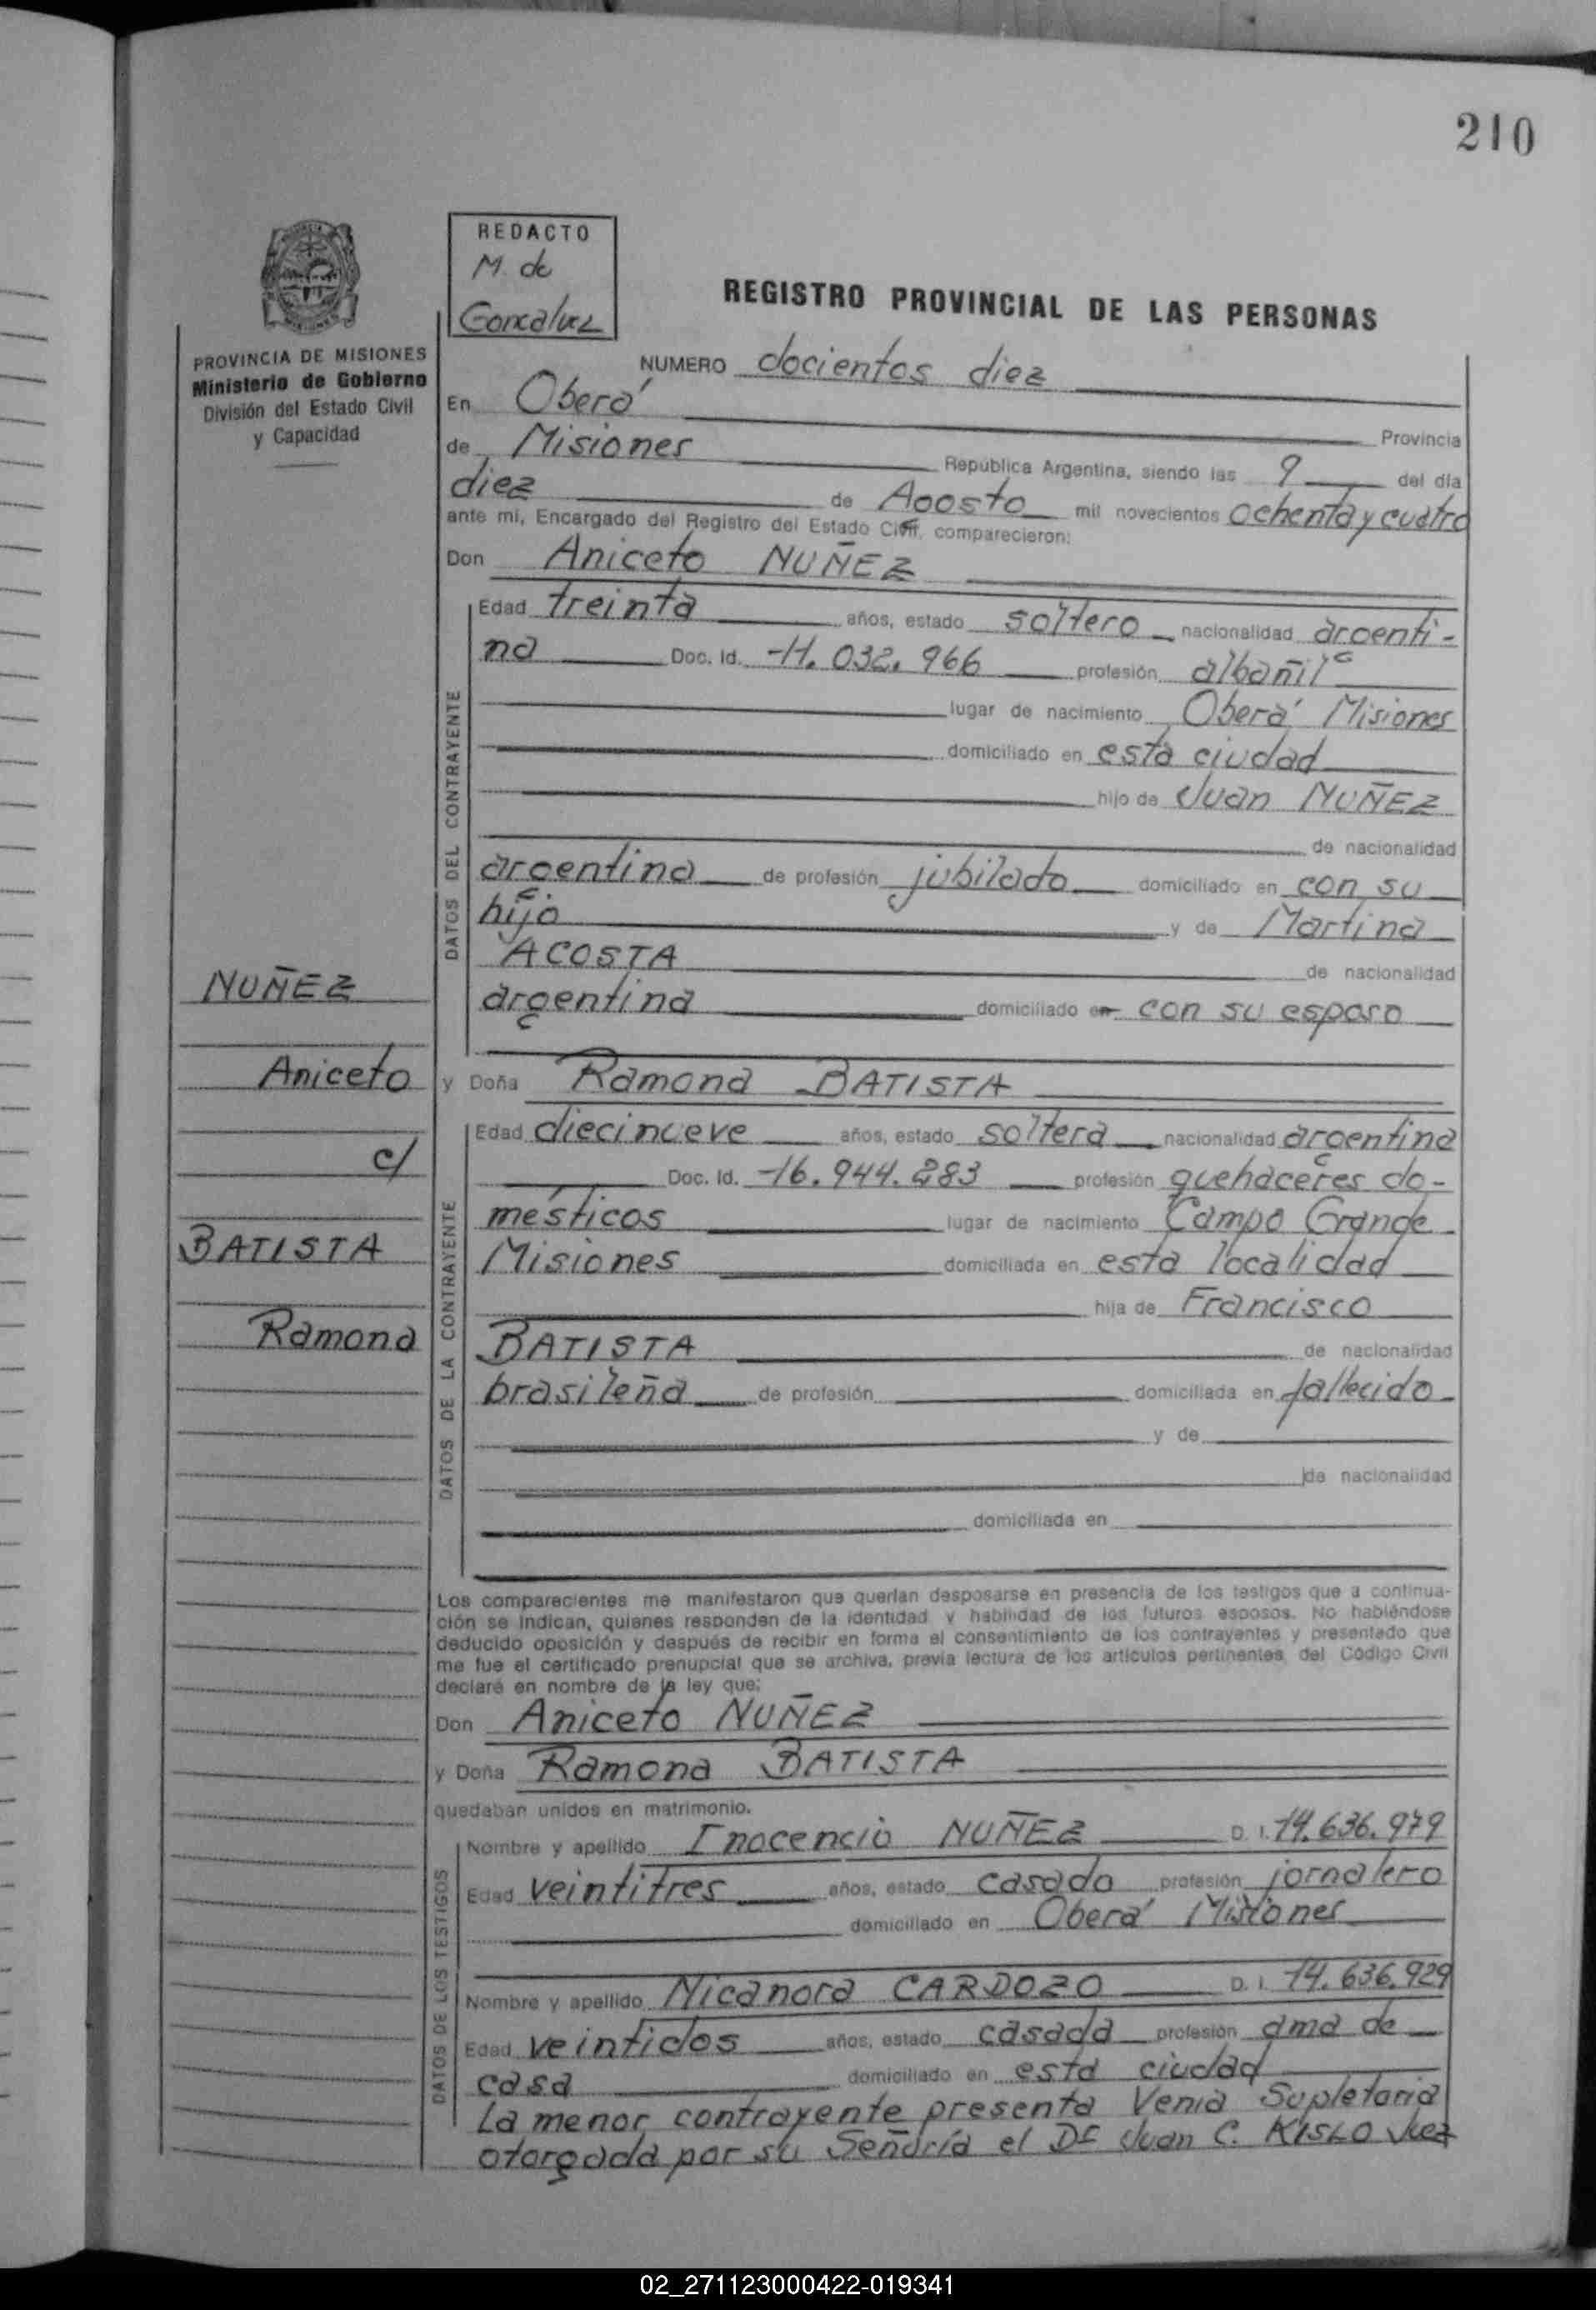 210
REDACTO
M. de
Goncalvez
REGISTRO PROVINCIAL DE LAS PERSONAS
PROVINCIA DE MISIONES
Ministerio de Gobierno
División del Estado Civil
y Capacidad
NUMERO docientos diez
En Oberá Provincia
de Misiones República Argentina, siendo las 9 del día
diez de Agosto mil novecientos ochenta y cuatro
ante mi, Encargado del Registro del Estado Civil, comparecieron:
Don Aniceto NUÑEZ
DATOS DEL CONTRAYENTE
Edad treinta años, estado soltero nacionalidad argenti-
na Doc. Id. -11.032.966 profesión albañil
lugar de nacimiento Oberá Misiones
domiciliado en esta ciudad
hijo de Juan NUÑEZ
de nacionalidad
argentina de profesión jubilado domiciliado en con su
hijo y de Martina
ACOSTA de nacionalidad
argentina domiciliado en con su esposo
NUÑEZ
Aniceto
c/
BATISTA
Ramona
y Doña Ramona BATISTA
DATOS DE LA CONTRAYENTE
Edad diecinueve años, estado soltera nacionalidad argentina
Doc. Id. -16.944.283 profesión quehaceres do-
mésticos lugar de nacimiento Campo Grande
Misiones domiciliada en esta localidad
hija de Francisco
BATISTA de nacionalidad
brasileña de profesión domiciliada en fallecido
y de
de nacionalidad
domiciliada en
Los comparecientes me manifestaron que querían desposarse en presencia de los testigos que a continua-
ción se indican, quienes responden de la identidad y habilidad de los futuros esposos. No habiéndose
deducido oposición y después de recibir en forma el consentimiento de los contrayentes y presentado que
me fue el certificado prenupcial que se archiva, previa lectura de los artículos pertinentes del Código Civil
declaré en nombre de la ley que:
Don Aniceto NUÑEZ
y Doña Ramona BATISTA
quedaban unidos en matrimonio.
DATOS DE LOS TESTIGOS
Nombre y apellido Inocencio NUÑEZ D. I. 14.636.979
Edad veintitres años, estado casado profesión jornalero
domiciliado en Oberá Misiones
Nombre y apellido Nicanora CARDOZO D. I. 14.636.929
Edad veintidos años, estado casada profesión ama de
casa domiciliado en esta ciudad
La menor contrayente presenta Venia Supletoria
otorgada por su Señoría el Dr Juan C. KISLO Juez
02_271123000422-019341